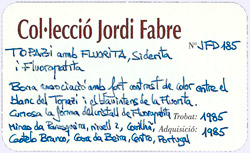 Col·lecció Jordi Fabre
Nº JFD185
TOPAZI amb FLUORITA, Siderita
i Fluorapatita
Bona associació amb fort contrast de color entre el
blanc del Topazi i el blau intens de la Fluorita.
Curiosa la forma del cristall de Fluorapatita
Trobat: 1985
Minas da Panasqueira, nivell 2, Covilhã,
Adquisició: 1985
Castelo Branco, Cova da Beira, Centro, Portugal